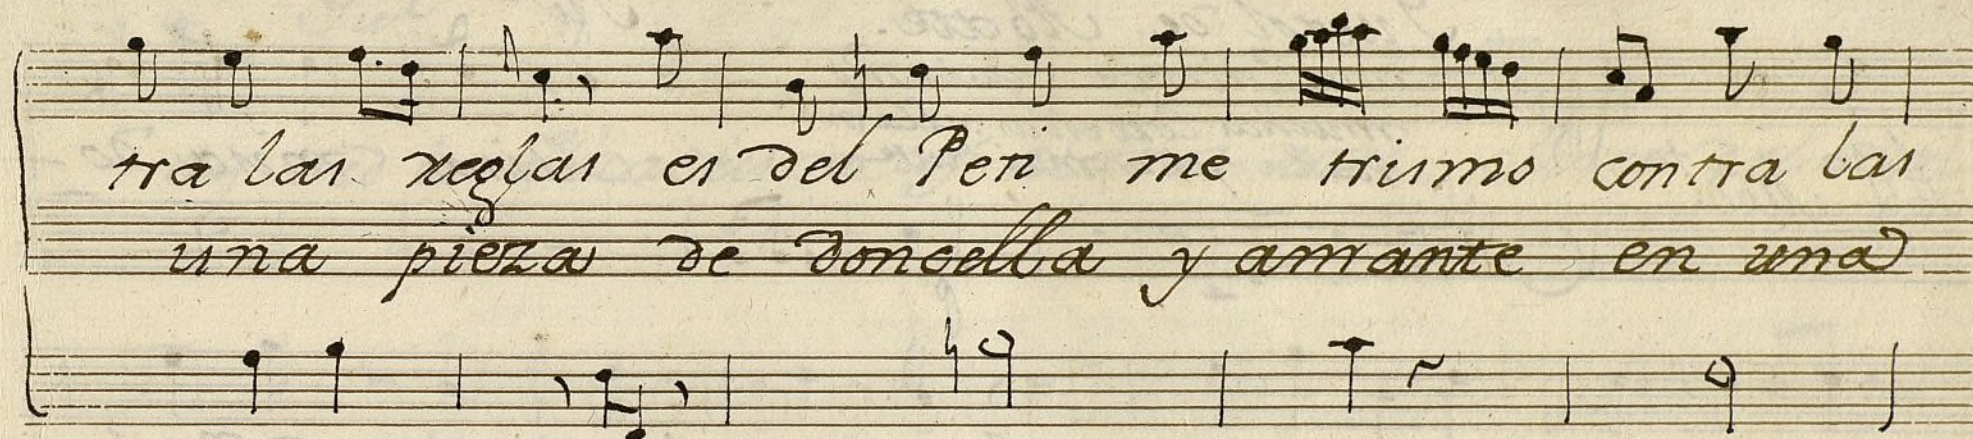 tra las reglas es del Peti me trismo contra las
una pieza de doncella y amante en una